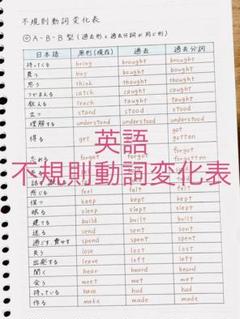 不規則動詞変化表
A-B-B型(過去形と過去分詞が同じ形)
日本語 原形(現在) 過去 過去分詞
持ってくる bring brought brought
買う buy bought bought
思う think thought thought
つかまえる catch caught caught
教える teach taught taught
立つ stand stood stood
理解する understand understood understood
得る get got got
gotten
forgot
英語
不規則動詞変化表
感じる feel felt felt
保つ keep kept kept
眠る sleep slept slept
建てる build built built
送る send sent sent
過ごす, 費やす spend spent spent
失う lose lost lost
出発する leave left left
聞く hear heard heard
会う meet met met
持っている have had had
作る make made made